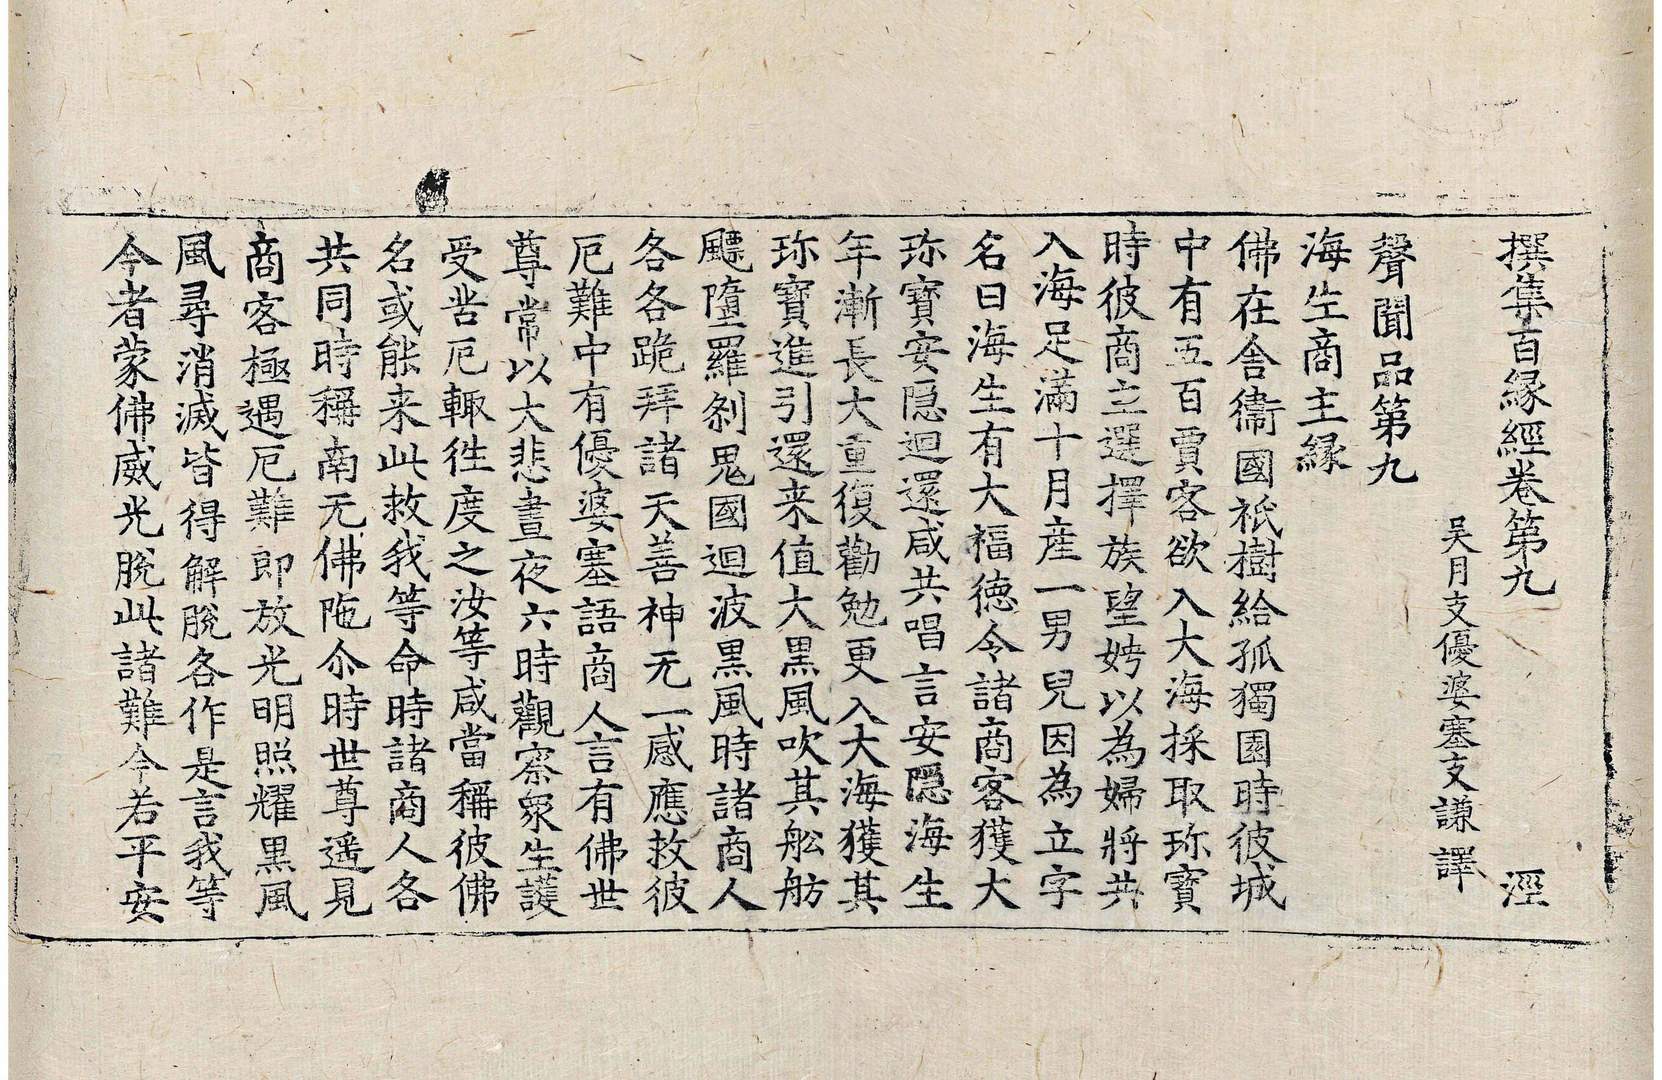 撰集百緣經卷第九　涇
吴月支優婆塞支謙譯
聲聞品第九
海生商主緣
佛在舍衞國祇樹給孤獨園時彼城
中有五百賈客欲入大海採取珎寶
時彼商主選擇族望娉以為婦將共
入海足滿十月産一男兒因為立字
名曰海生有大福德令諸商客獲大
珎寶安隱迴還咸共唱言安隱海生
年漸長大重復勸勉更入大海獲其
珎寶進引還来值大黒風吹其舩舫
飃墮羅剎鬼國迴波黒風時諸商人
各各跪拜諸天善神无一感應救彼
厄難中有優婆塞語商人言有佛世
尊常以大悲晝夜六時觀察衆生護
受苦厄輙徃度之汝等咸當稱彼佛
名或能来此救我等命時諸商人各
共同時稱南无佛陁尒時世尊遥見
商客極遇厄難即放光明照耀黒風
風尋消滅皆得解脫各作是言我等
今者蒙佛威光脫此諸難今若平安